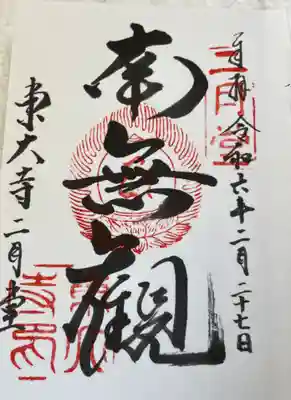 奉拝 令和六年二月二十七日
二月堂
南無觀
東大寺 二月堂